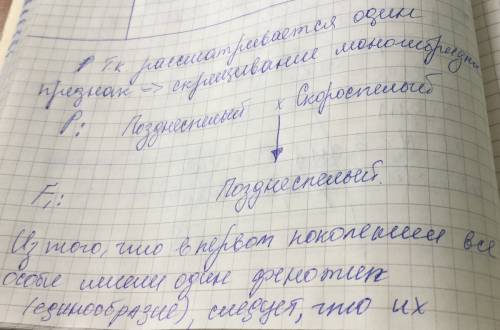 Тк рассматривается один
признак → скрещивание моногибридн
P: Позднеспелый × Скороспелый
F₁: Позднеспелый.
Из того, что в первом поколении все
особи имели один фенотип
(единообразие), следует, что их